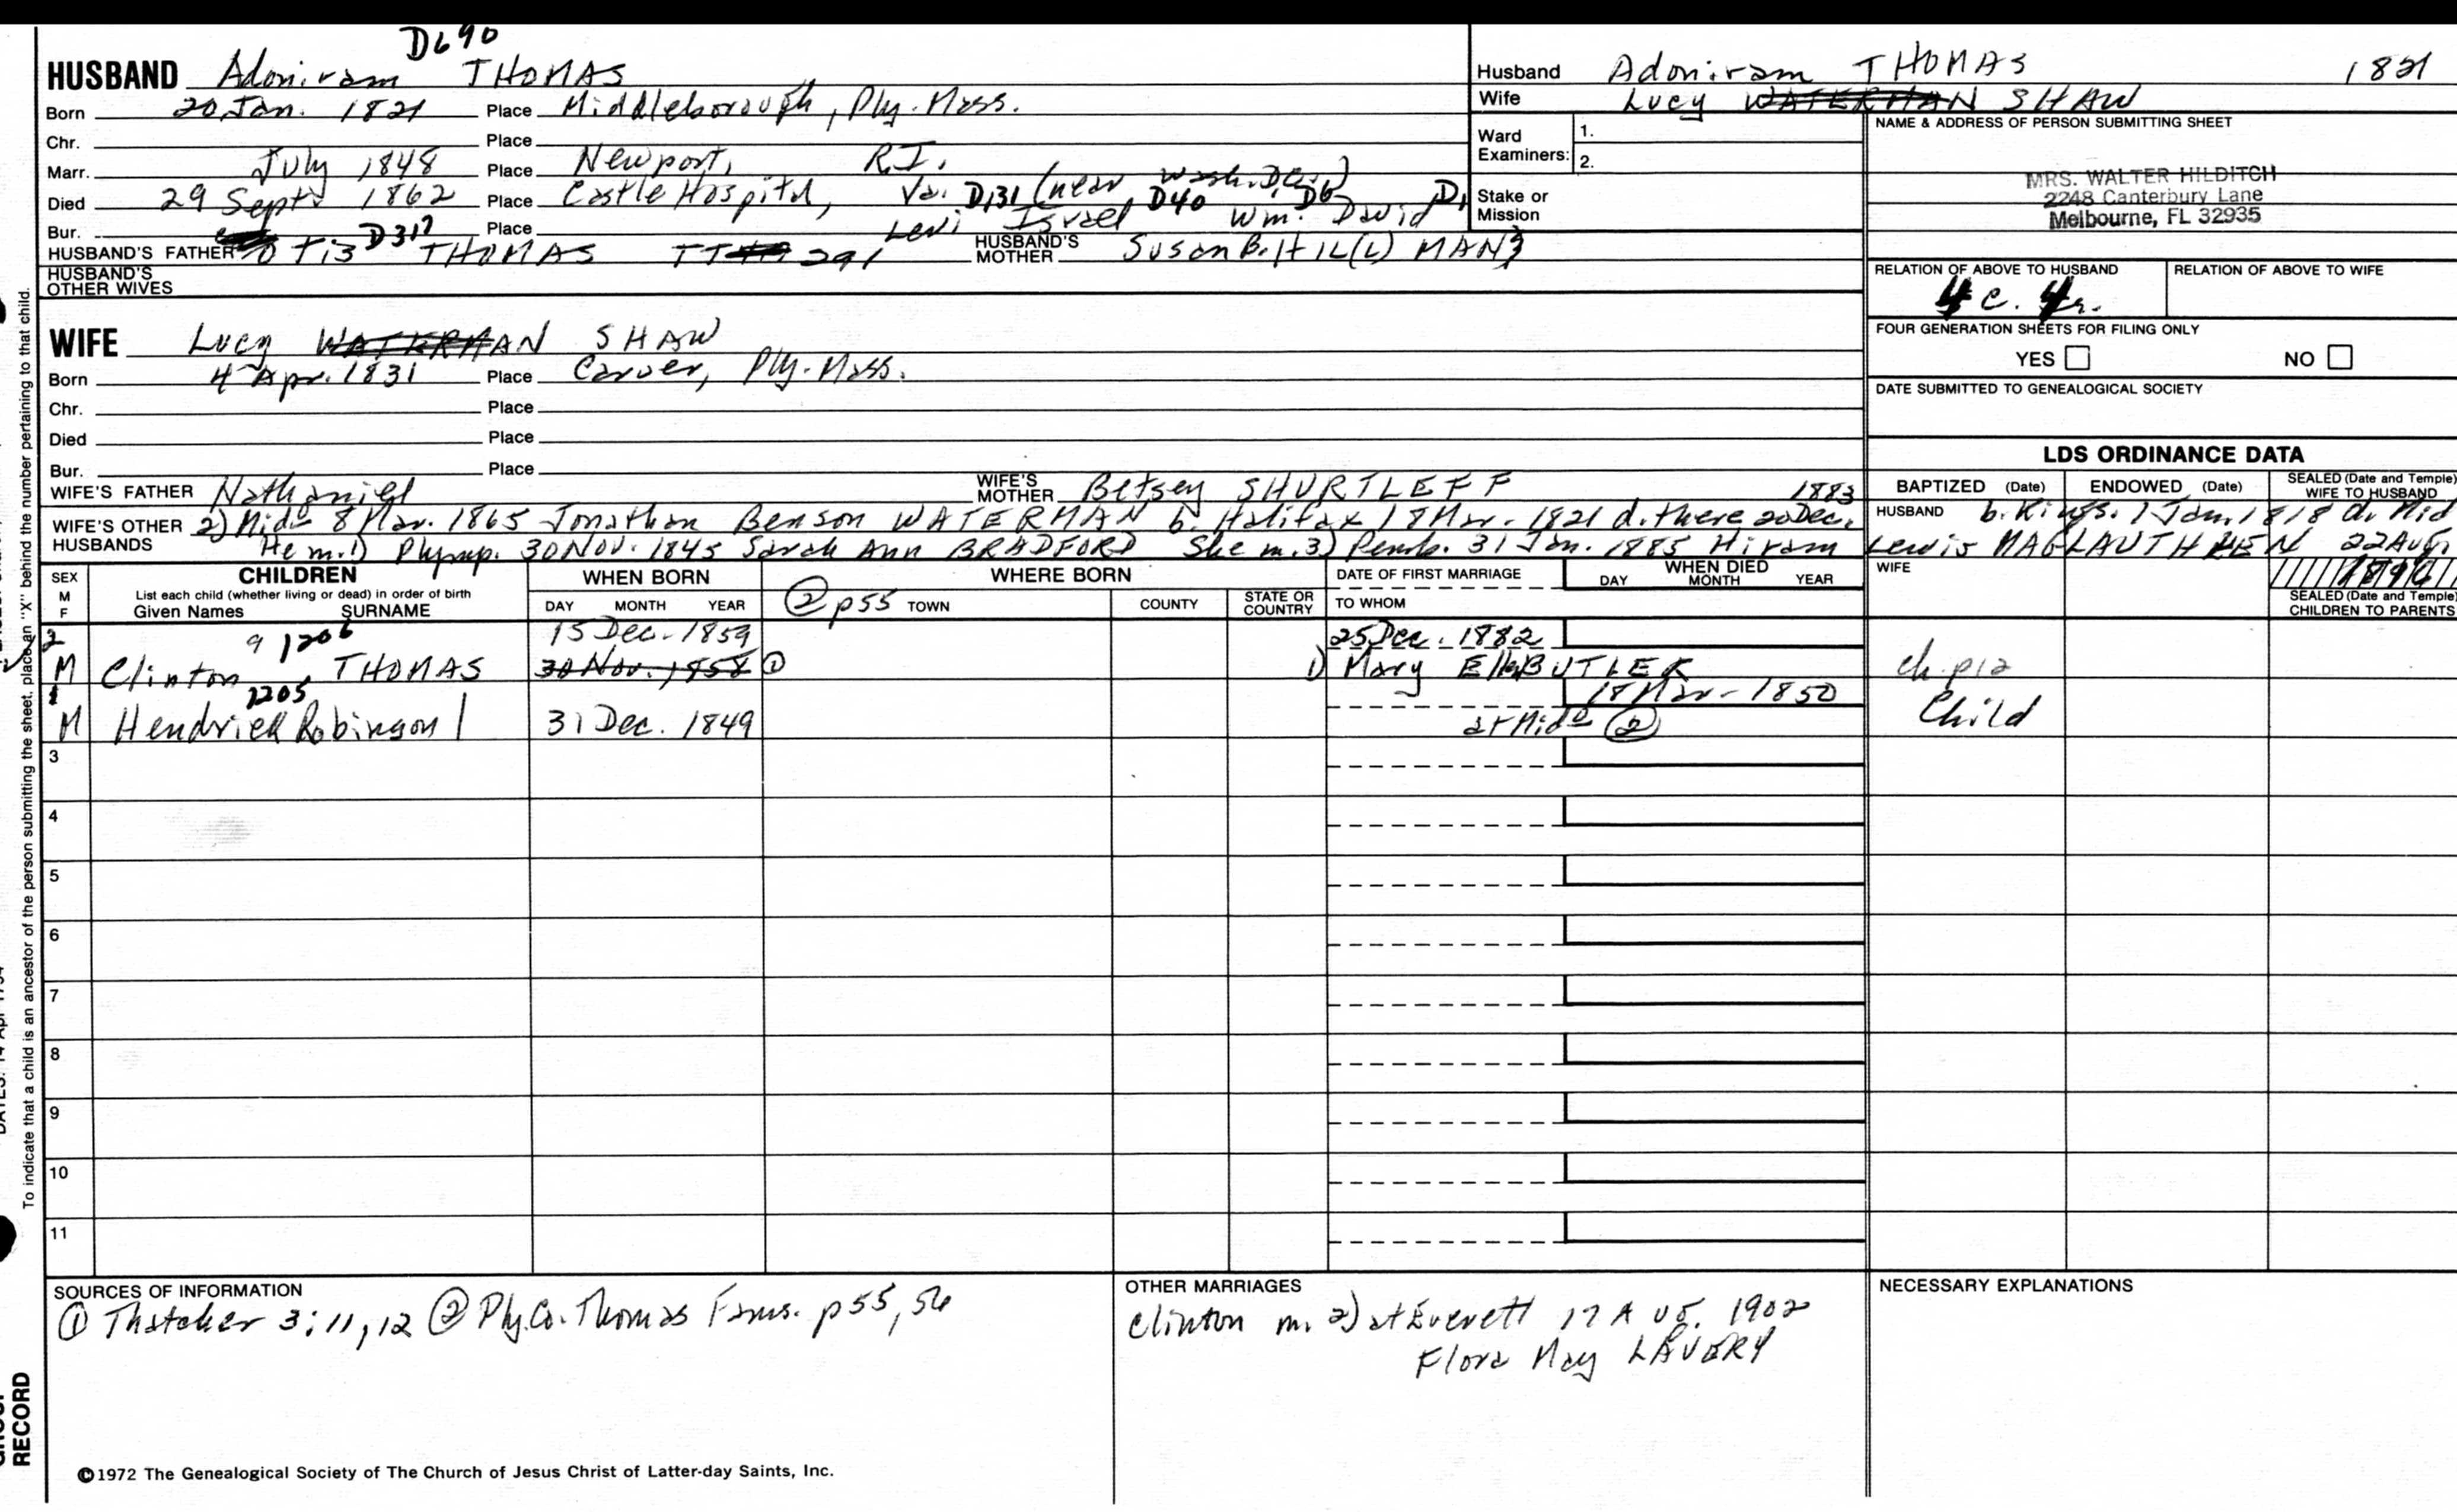 D690
HUSBAND Adoniram THOMAS
Born 20 Jan. 1821 Place Middleborough, Ply. Mass.
Chr. Place
Marr. July 1848 Place Newport, R.I.
Died 29 Sept 1862 Place Castle Hospital, Va. D131 (near Wash. D.C.) D40 D6 D1
Bur. Place Levi Israel Wm. David
D317
HUSBAND'S FATHER Otis THOMAS 291 HUSBAND'S MOTHER Susan B. HIL(L) MAN
HUSBAND'S OTHER WIVES
WIFE Lucy WATERMAN SHAW
Born 4 Apr. 1831 Place Carver, Ply. Mass.
Chr. Place
Died Place
Bur. Place
WIFE'S FATHER Nathaniel WIFE'S MOTHER Betsey SHURTLEFF 1883
WIFE'S OTHER HUSBANDS 2) Mido 8 Mar. 1865 Jonathan Benson WATERMAN b. Halifax 18 Mar. 1821 d. there 20 Dec.
He m. 1) Plymp. 30 Nov. 1845 Sarah Ann BRADFORD She m. 3) Pemb. 31 Jan. 1885 Hiram Lewis MAGLAUTHREN 22 Aug.
Husband Adoniram THOMAS 1821
Wife Lucy WATERMAN SHAW
Ward Examiners: 1.
2.
Stake or Mission
NAME & ADDRESS OF PERSON SUBMITTING SHEET
MRS. WALTER HILDITCH
2248 Canterbury Lane
Melbourne, FL 32935
RELATION OF ABOVE TO HUSBAND RELATION OF ABOVE TO WIFE
4 c. 4 r.
FOUR GENERATION SHEETS FOR FILING ONLY
YES NO
DATE SUBMITTED TO GENEALOGICAL SOCIETY
LDS ORDINANCE DATA
BAPTIZED (Date) ENDOWED (Date) SEALED (Date and Temple) WIFE TO HUSBAND
HUSBAND b. Kings. 1 Jan. 1818 d. Mid
WIFE 1896
SEALED (Date and Temple) CHILDREN TO PARENTS
SEX M F CHILDREN List each child (whether living or dead) in order of birth Given Names SURNAME
WHEN BORN DAY MONTH YEAR
WHERE BORN ② p55 TOWN COUNTY STATE OR COUNTRY
DATE OF FIRST MARRIAGE TO WHOM
WHEN DIED DAY MONTH YEAR
2 1206 15 Dec. 1859 25 Dec. 1882
M Clinton THOMAS 30 Nov. 1858 ① 1) Mary Ella BUTLER ch. p12
1 1205 18 Mar. 1850
M Hendrick Robinson 31 Dec. 1849 at Mido ② Child
3
4
5
6
7
8
9
10
11
SOURCES OF INFORMATION
① Thatcher 3:11,12 ② Ply. Co. Thomas Fams. p 55, 56
OTHER MARRIAGES
Clinton m. 2) at Everett 17 AUG. 1902
Flora May LAVERY
NECESSARY EXPLANATIONS
©1972 The Genealogical Society of The Church of Jesus Christ of Latter-day Saints, Inc.
To indicate that a child is an ancestor of the person submitting the sheet, place an "X" behind the number pertaining to that child.
RECORD